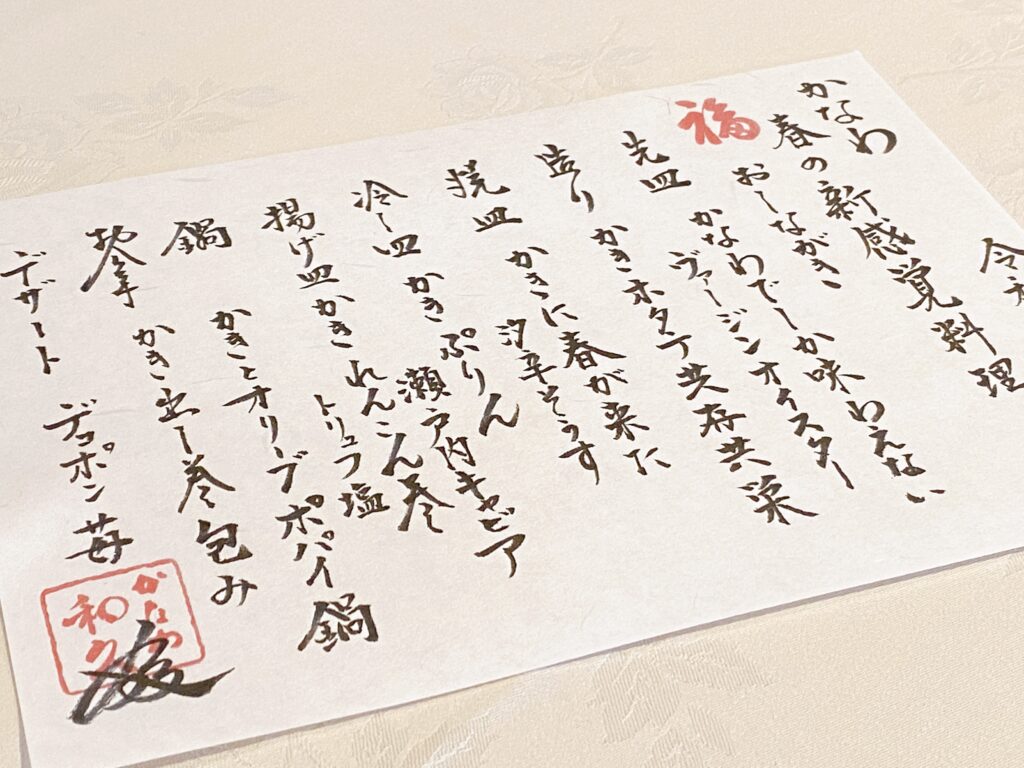 令和
かなわ
春の新感覚料理
おしながき
福
先皿
かなわでしか味わえない
ヴァージンオイスター
造り
かきホタテ共存共栄
焼皿
かきに春が来た
汐辛そうす
冷し皿
かきぷりん
瀬戸内キャビア
揚げ皿
かきれんこん巻
トリュフ塩
鍋
かきとオリーブポパイ鍋
かき出し巻包み
デザート
デコポン苺
かなわ